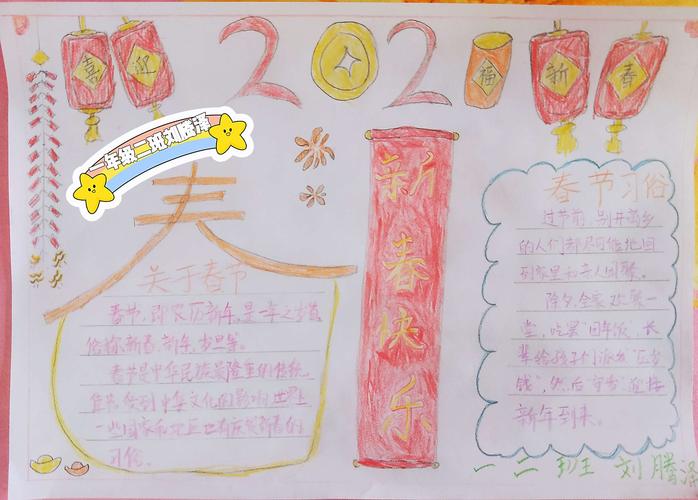 喜迎 2 2 福 新春
一年级二班刘腾泽
春
关于春节
春节,即农历新年,是一年之岁首,
俗称新春、新年、岁旦等。
春节是中华民族最隆重的传统
佳节。受到中华文化的影响,世界上
一些国家和地区也有庆贺新春的
习俗。
新春快乐
春节习俗
过节前,别井离乡
的人们都尽可能地回
到家里和亲人团聚。
除夕,全家欢聚一
堂,吃罢“团年饭”,长
辈给孩子们派发“压岁
钱”,然后“守岁”迎接
新年到来。
一二班 刘腾泽